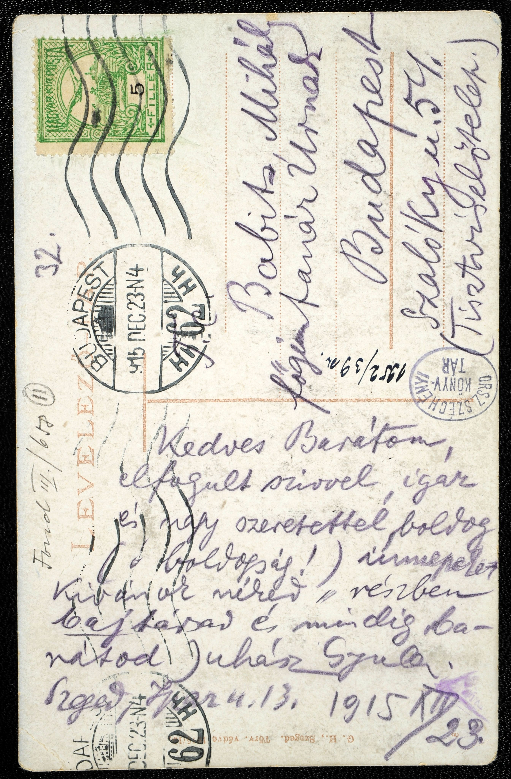 5
FILLÉR
32.
BUDAPEST
915 DEC.23-N4
62
LEVELEZ
Fond III/618 (11)
Babits Mihály
főgimn. tanár Úrnak
Budapest
Szalóky u. 54.
(Tisztviselőtelep.)
1252/39 n.
ORSZ. SZECHENYI KÖNYVTÁR
Kedves Barátom,
elfogult szivvel, igaz
és nagy szeretettel boldog
boldogság!) ünnepeket
kivánok néked,
részben
bajtársad és mindig ba-
rátod Juhász Gyula.
Szged, u. 13. 1915 XII/23.
DEC.23-N4
62
G. H., Szeged. Törv. védve